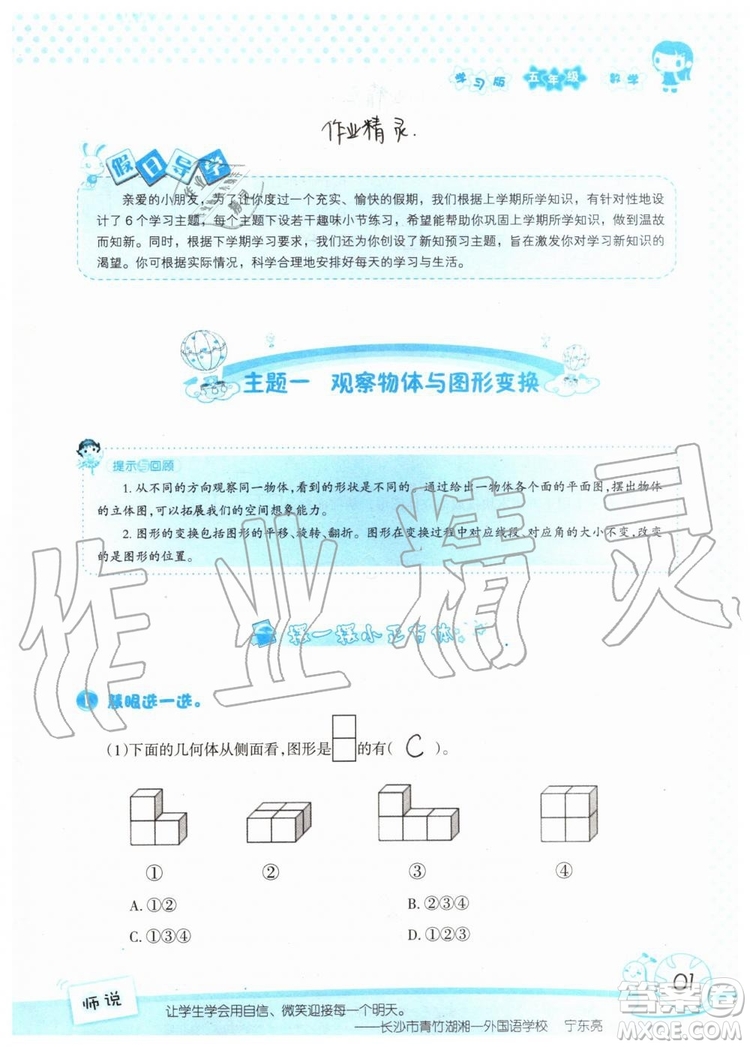 学习版 五年级 数学
作业精灵.
假日导学
亲爱的小朋友，为了让你度过一个充实、愉快的假期，我们根据上学期所学知识，有针对性地设
计了6个学习主题，每个主题下设若干趣味小节练习，希望能够帮助你巩固上学期所学知识，做到温故
而知新。同时，根据下学期学习要求，我们为你创设了新知预习主题，旨在激发你对学习新知识的
渴望。你可根据实际情况，科学合理地安排好每天的学习与生活。
主题一 观察物体与图形变换
提示与回顾
1. 从不同的方向观察同一物体，看到的形状是不同的。通过给出一物体各个面的平面图，摆出物体
的立体图，可以拓展我们的空间想象能力。
2. 图形的变换包括图形的平移、旋转、翻折。图形在变换过程中对应线段、对应角的大小不变，改变
的是图形的位置。
作业精灵
摆一摆小正方体
1 慧眼选一选。
(1)下面的几何体从侧面看，图形是的有( C )。
① ② ③ ④
A. ①② B. ②③④
C. ①③④ D. ①③④
师说
让学生学会用自信、微笑迎接每一个明天。
——长沙市青竹湖湘一外国语学校 宁东亮
01
答案卷
MXQE.COM